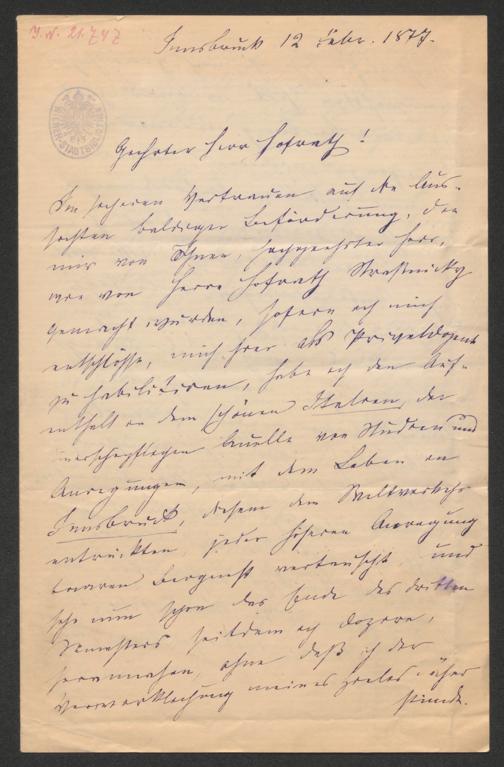 J. N. 21.747
Innsbruck 12 Febr. 1877.
Geehrter Herr Hofrath!
Im sicheren Vertrauen auf die Aus-
sichten baldiger Beförderung, die
mir von Ihnen, hochgeehrter Herr,
wie von Herrn Hofrath
gemacht wurden, sofern ich mich
entschlösse, mich hier als Privatdozent
zu habilitiren, habe ich den Auf-
enthalt in dem schönen Italien, der
unerschöpflichen Quelle von Studien und
Anregungen, mit dem Leben in
Innsbruck, diesem dem Weltverkehr
entrückten, jeder höheren Anregung
baaren Bergnest vertauscht und
sehe nun schon das Ende des dritten
Semesters seitdem ich dozire,
herannahen, ohne daß ich der
Verwirklichung meines Zieles näher
stünde.